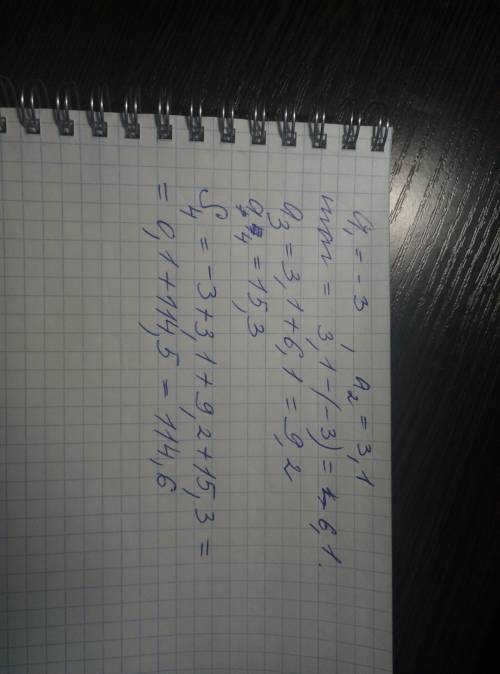 a₁ = -3 , a₂ = 3,1
шаг = 3,1-(-3) = 6,1.
a₃ = 3,1+6,1 = 9,2
a₄ = 15,3
S₄ = -3+3,1+9,2+15,3 =
= 0,1+114,5 = 114,6